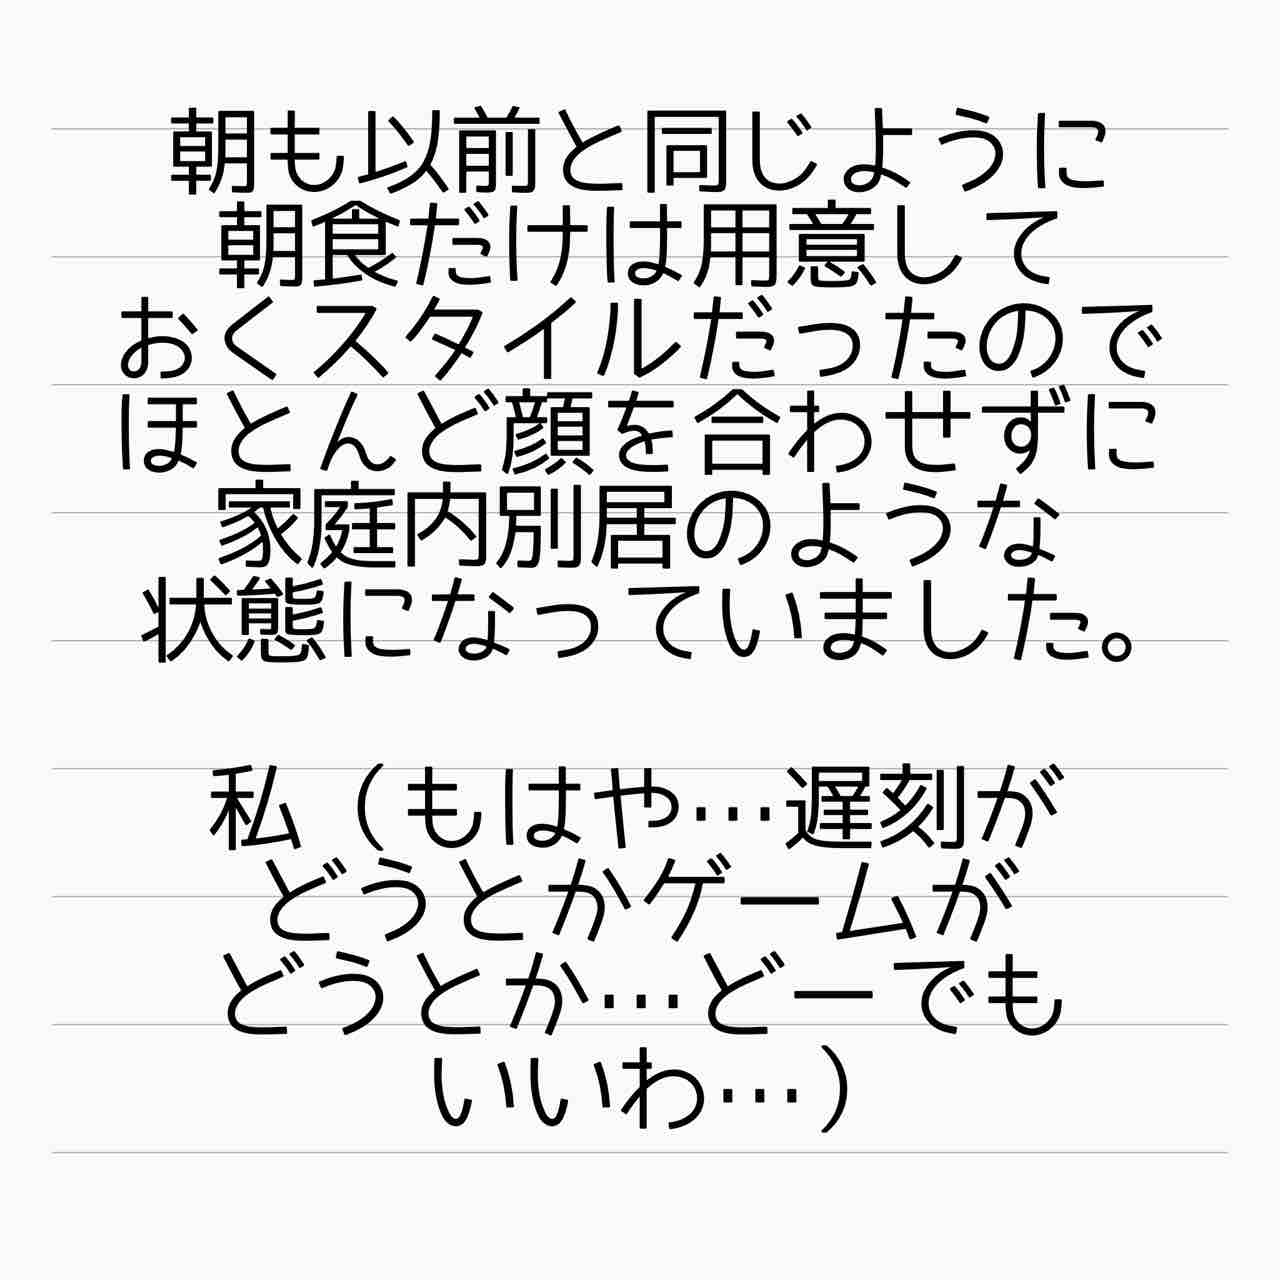 朝も以前と同じように
朝食だけは用意して
おくスタイルだったので
ほとんど顔を合わせずに
家庭内別居のような
状態になっていました。
私（もはや…遅刻が
どうとかゲームが
どうとか…どーでも
いいわ…）